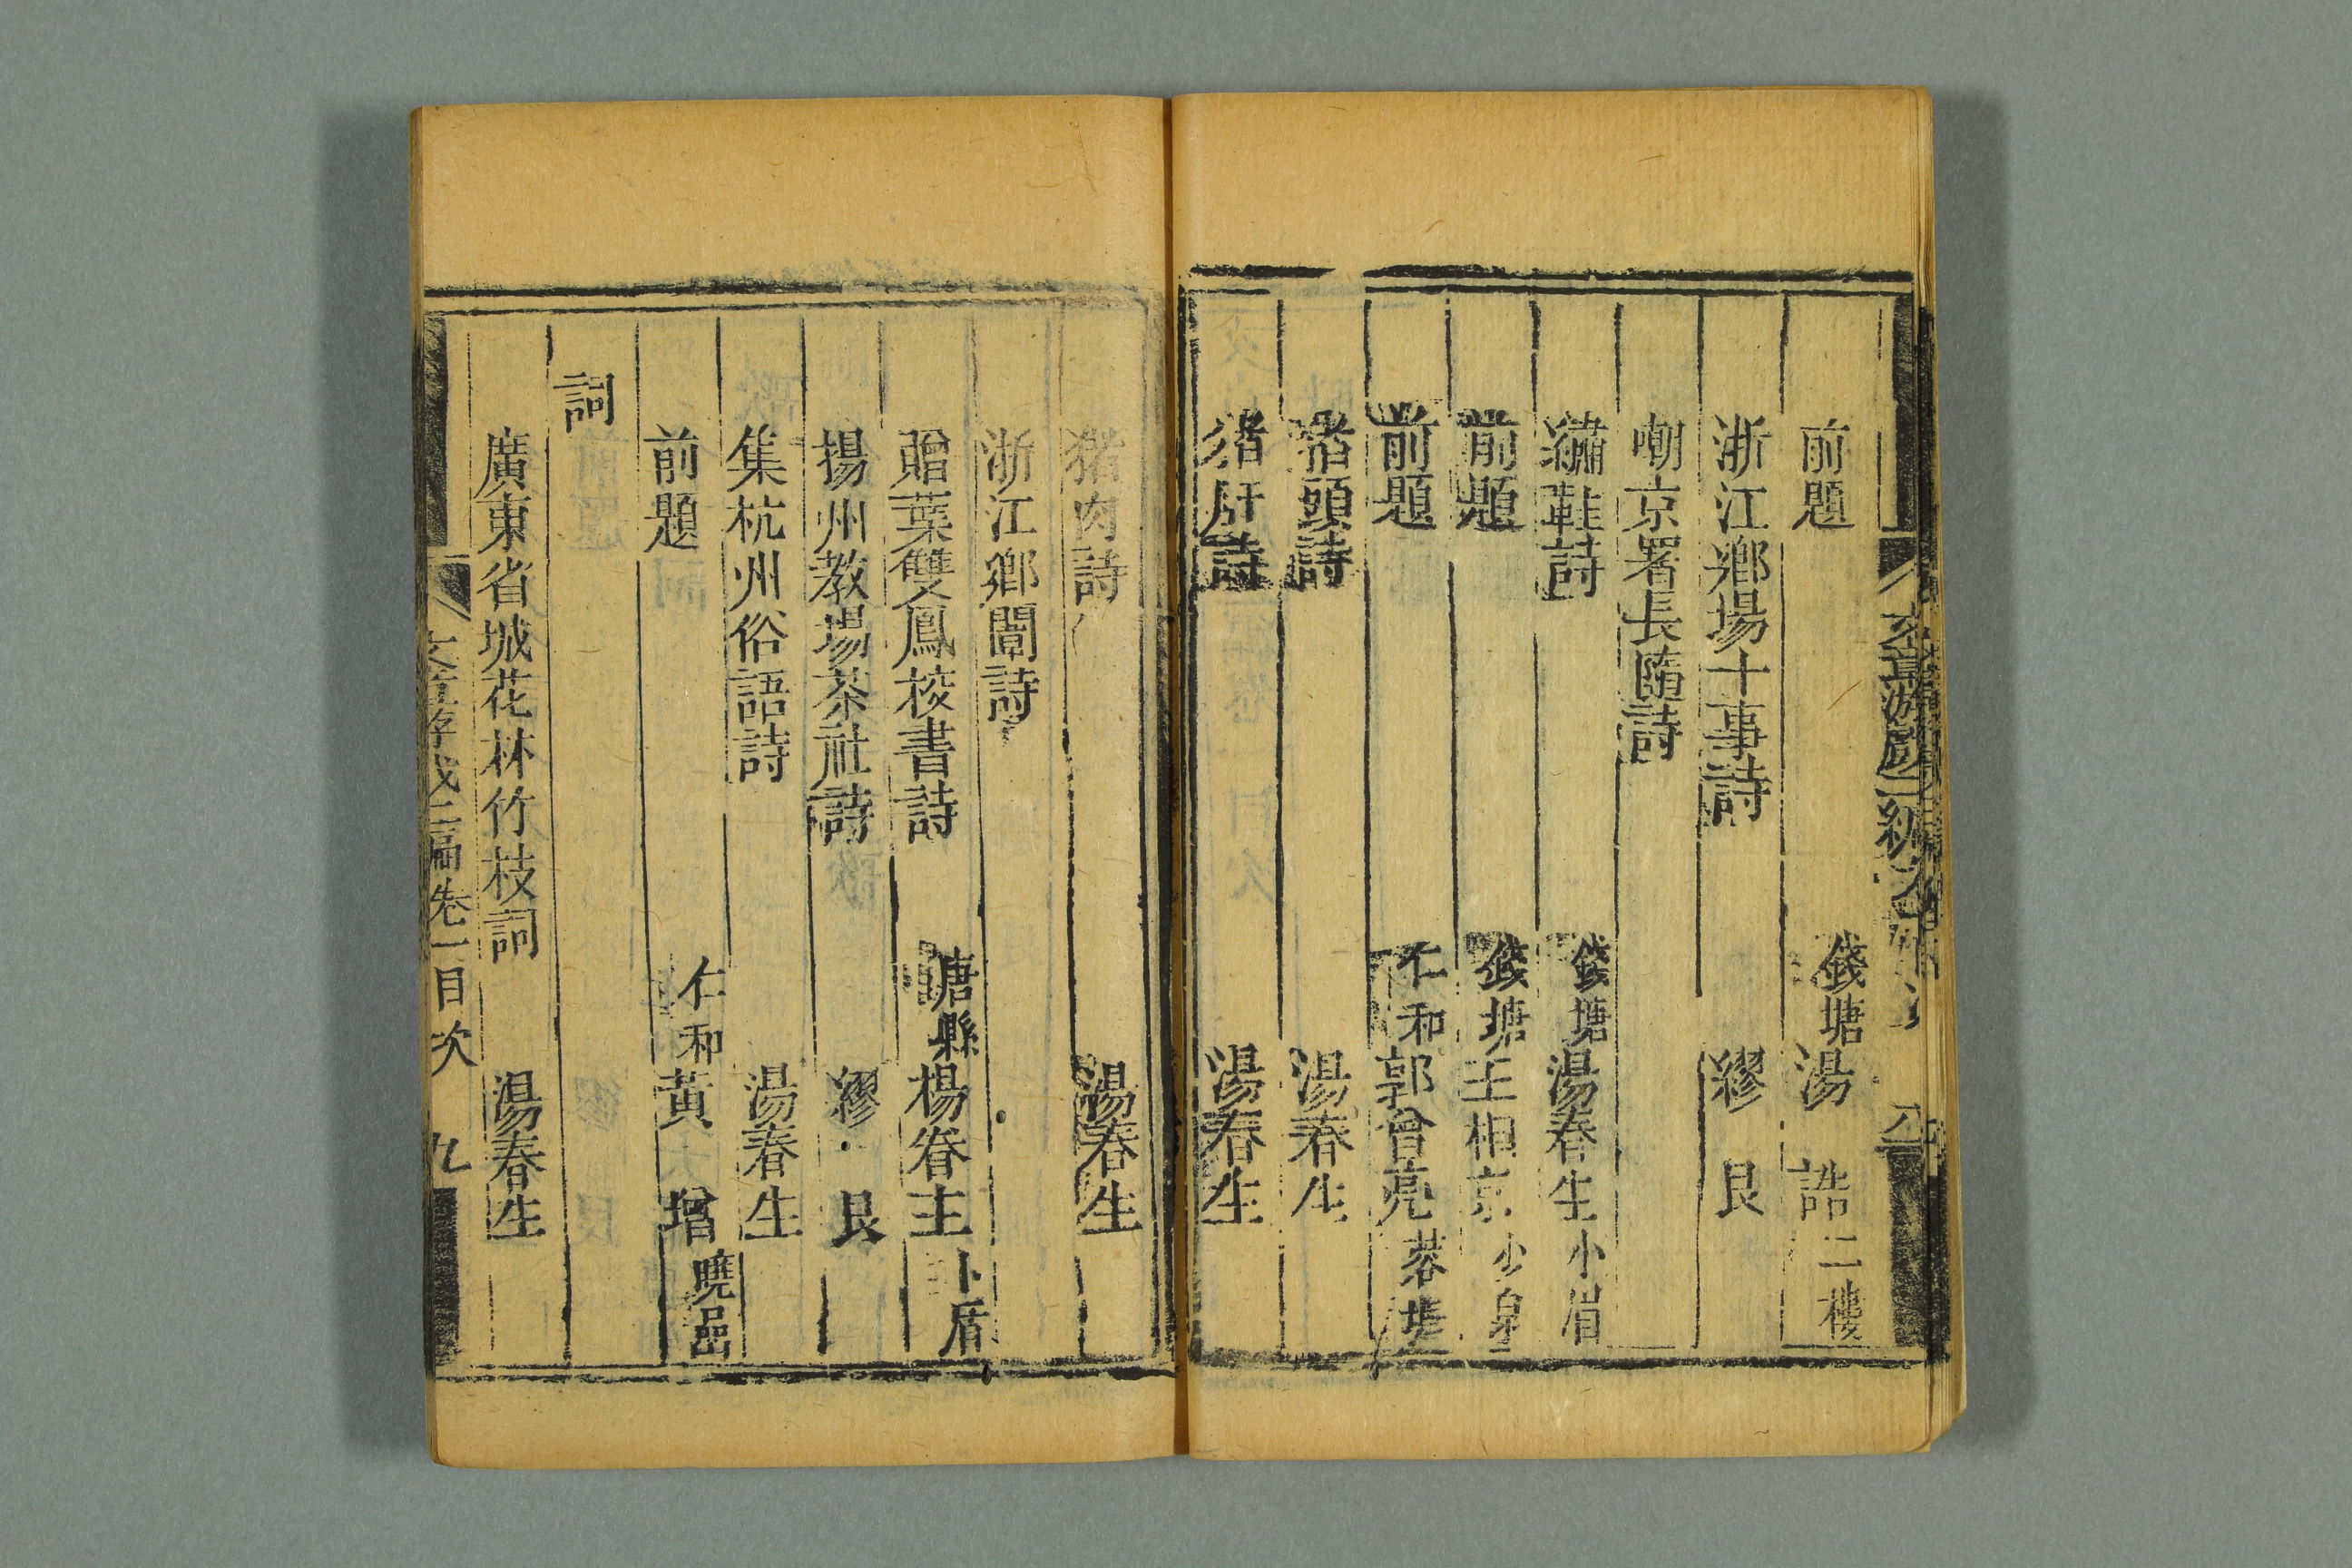 前題 錢塘 湯誥 二樓
浙江鄉場十事詩 繆艮
嘲京署長隨詩
繡鞋詩 錢塘 湯春生 小眉
前題 錢塘 王相京 少泉
前題 仁和 郭曾亮 蓉
猪頭詩 湯春生
猪肝詩 湯春生
猪肉詩 湯春生
浙江鄉闈詩
贈葉雙鳳校書詩 唐縣 楊眷主 卜盾
揚州教場茶社詩 繆艮
集杭州俗語詩 湯春生
前題 仁和 黃增 曉嵒
詞
廣東省城花林竹枝詞 湯春生
文章游戲二編卷一目次 九